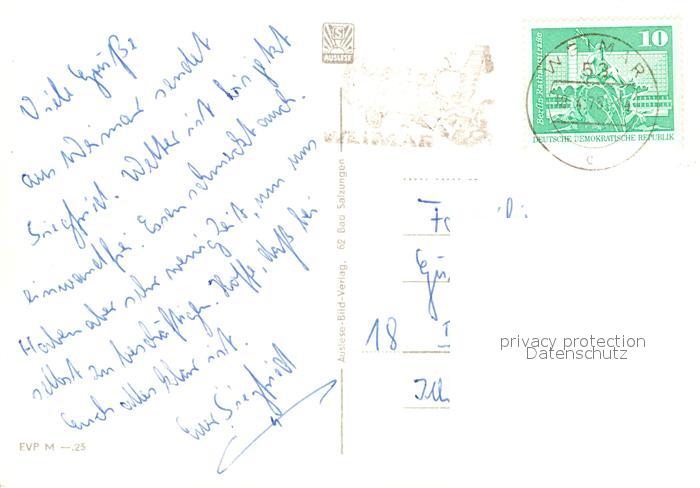 Viele Grüße
aus Weimar sendet
Siegfried. Wetter ist bis jetzt
einwandfrei. Essen schmeckt auch.
Haben aber sehr wenig Zeit, um uns
selbst zu beschäftigen. Hoffe, daß bei
Euch alles klar ist.
Euer Siegfried
EVP M —.25
AUSLESE
Auslese-Bild-Verlag, 62 Bad Salzungen
WEIMAR
53
c
10
Berlin, Rathausstraße
DEUTSCHE DEMOKRATISCHE REPUBLIK
18
privacy protection
Datenschutz